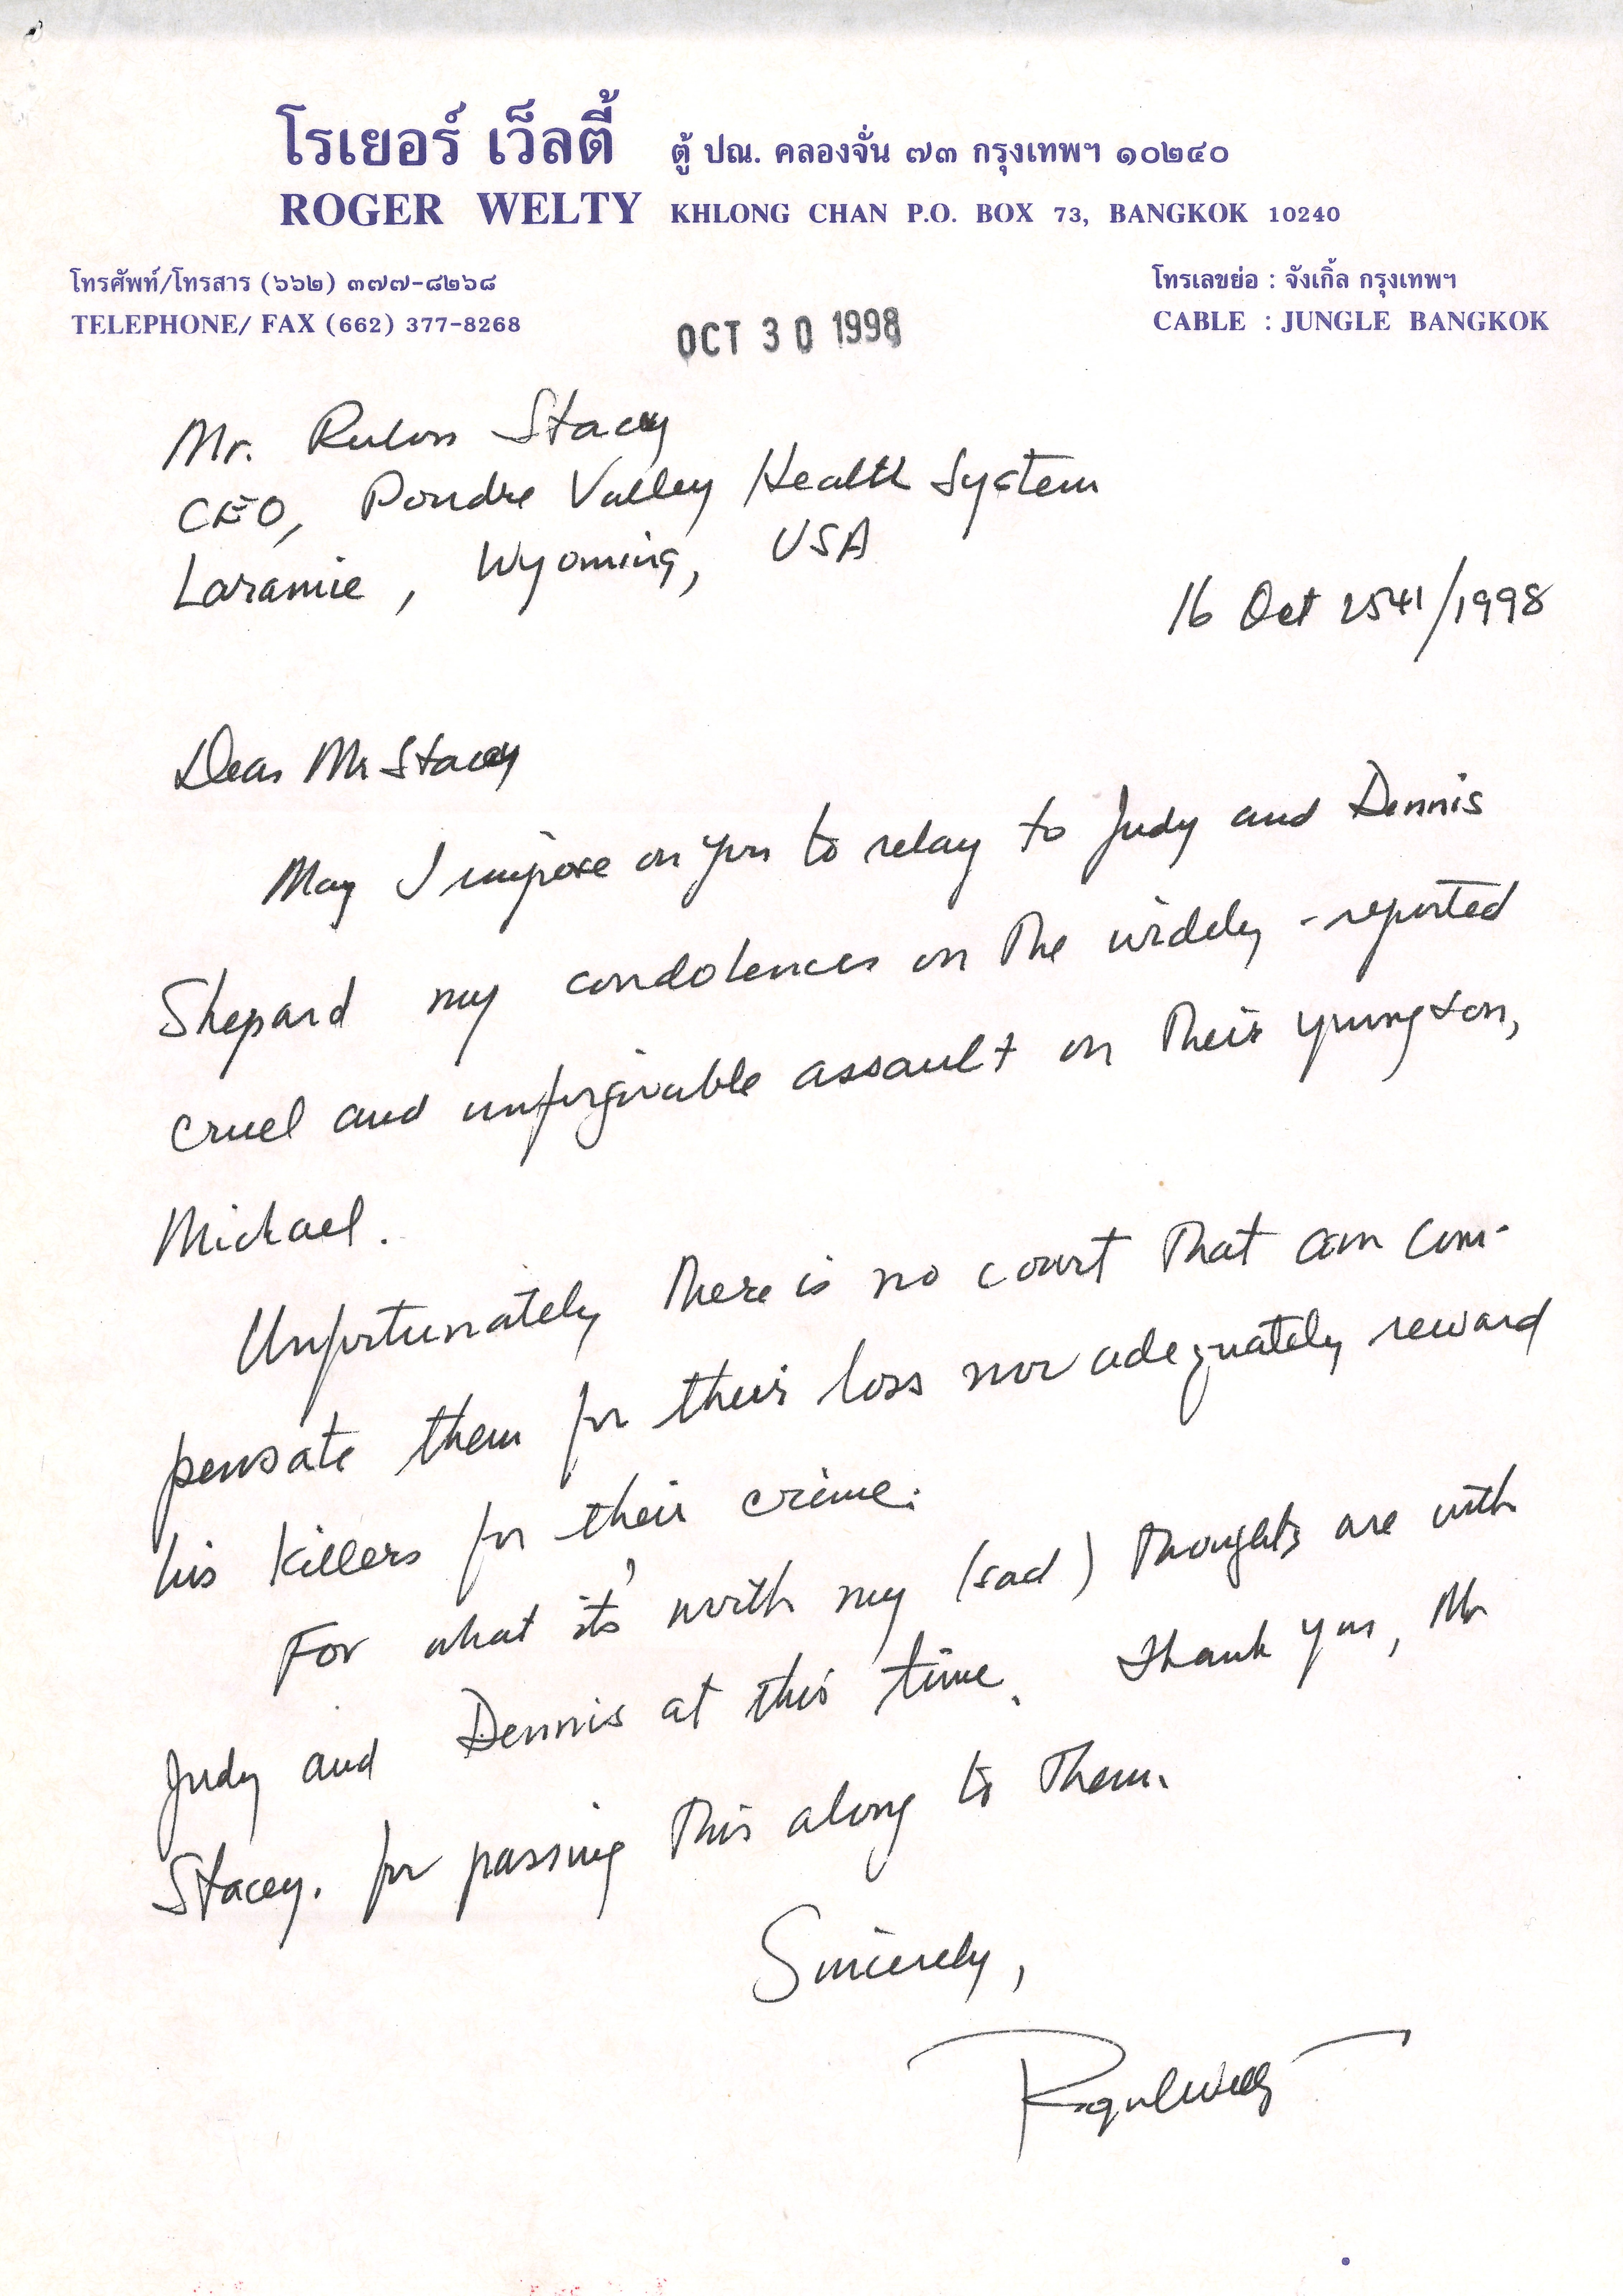 โรเยอร์ เว็ลตี้ ตู้ ปณ. คลองจั่น ๗๓ กรุงเทพฯ ๑๐๒๔๐
ROGER WELTY KHLONG CHAN P.O. BOX 73, BANGKOK 10240
โทรศัพท์/โทรสาร (๖๖๒) ๓๗๗-๘๒๖๘ โทรเลขย่อ : จังเกิ้ล กรุงเทพฯ
TELEPHONE/ FAX (662) 377-8268 CABLE : JUNGLE BANGKOK
OCT 30 1998
Mr. Rulon Stacey
CEO, Poudre Valley Health System
Laramie, Wyoming, USA
16 Oct 2541/1998
Dear Mr Stacey
May I impose on you to relay to Judy and Dennis
Shepard my condolences on the widely-reported
cruel and unforgivable assault on their young son,
Michael.
Unfortunately there is no court that can com-
pensate them for their loss nor adequately reward
his killers for their crime.
For what its' worth my (sad) thoughts are with
Judy and Dennis at this time. Thank you, Mr
Stacey. for passing this along to them.
Sincerely,
Roger Welty